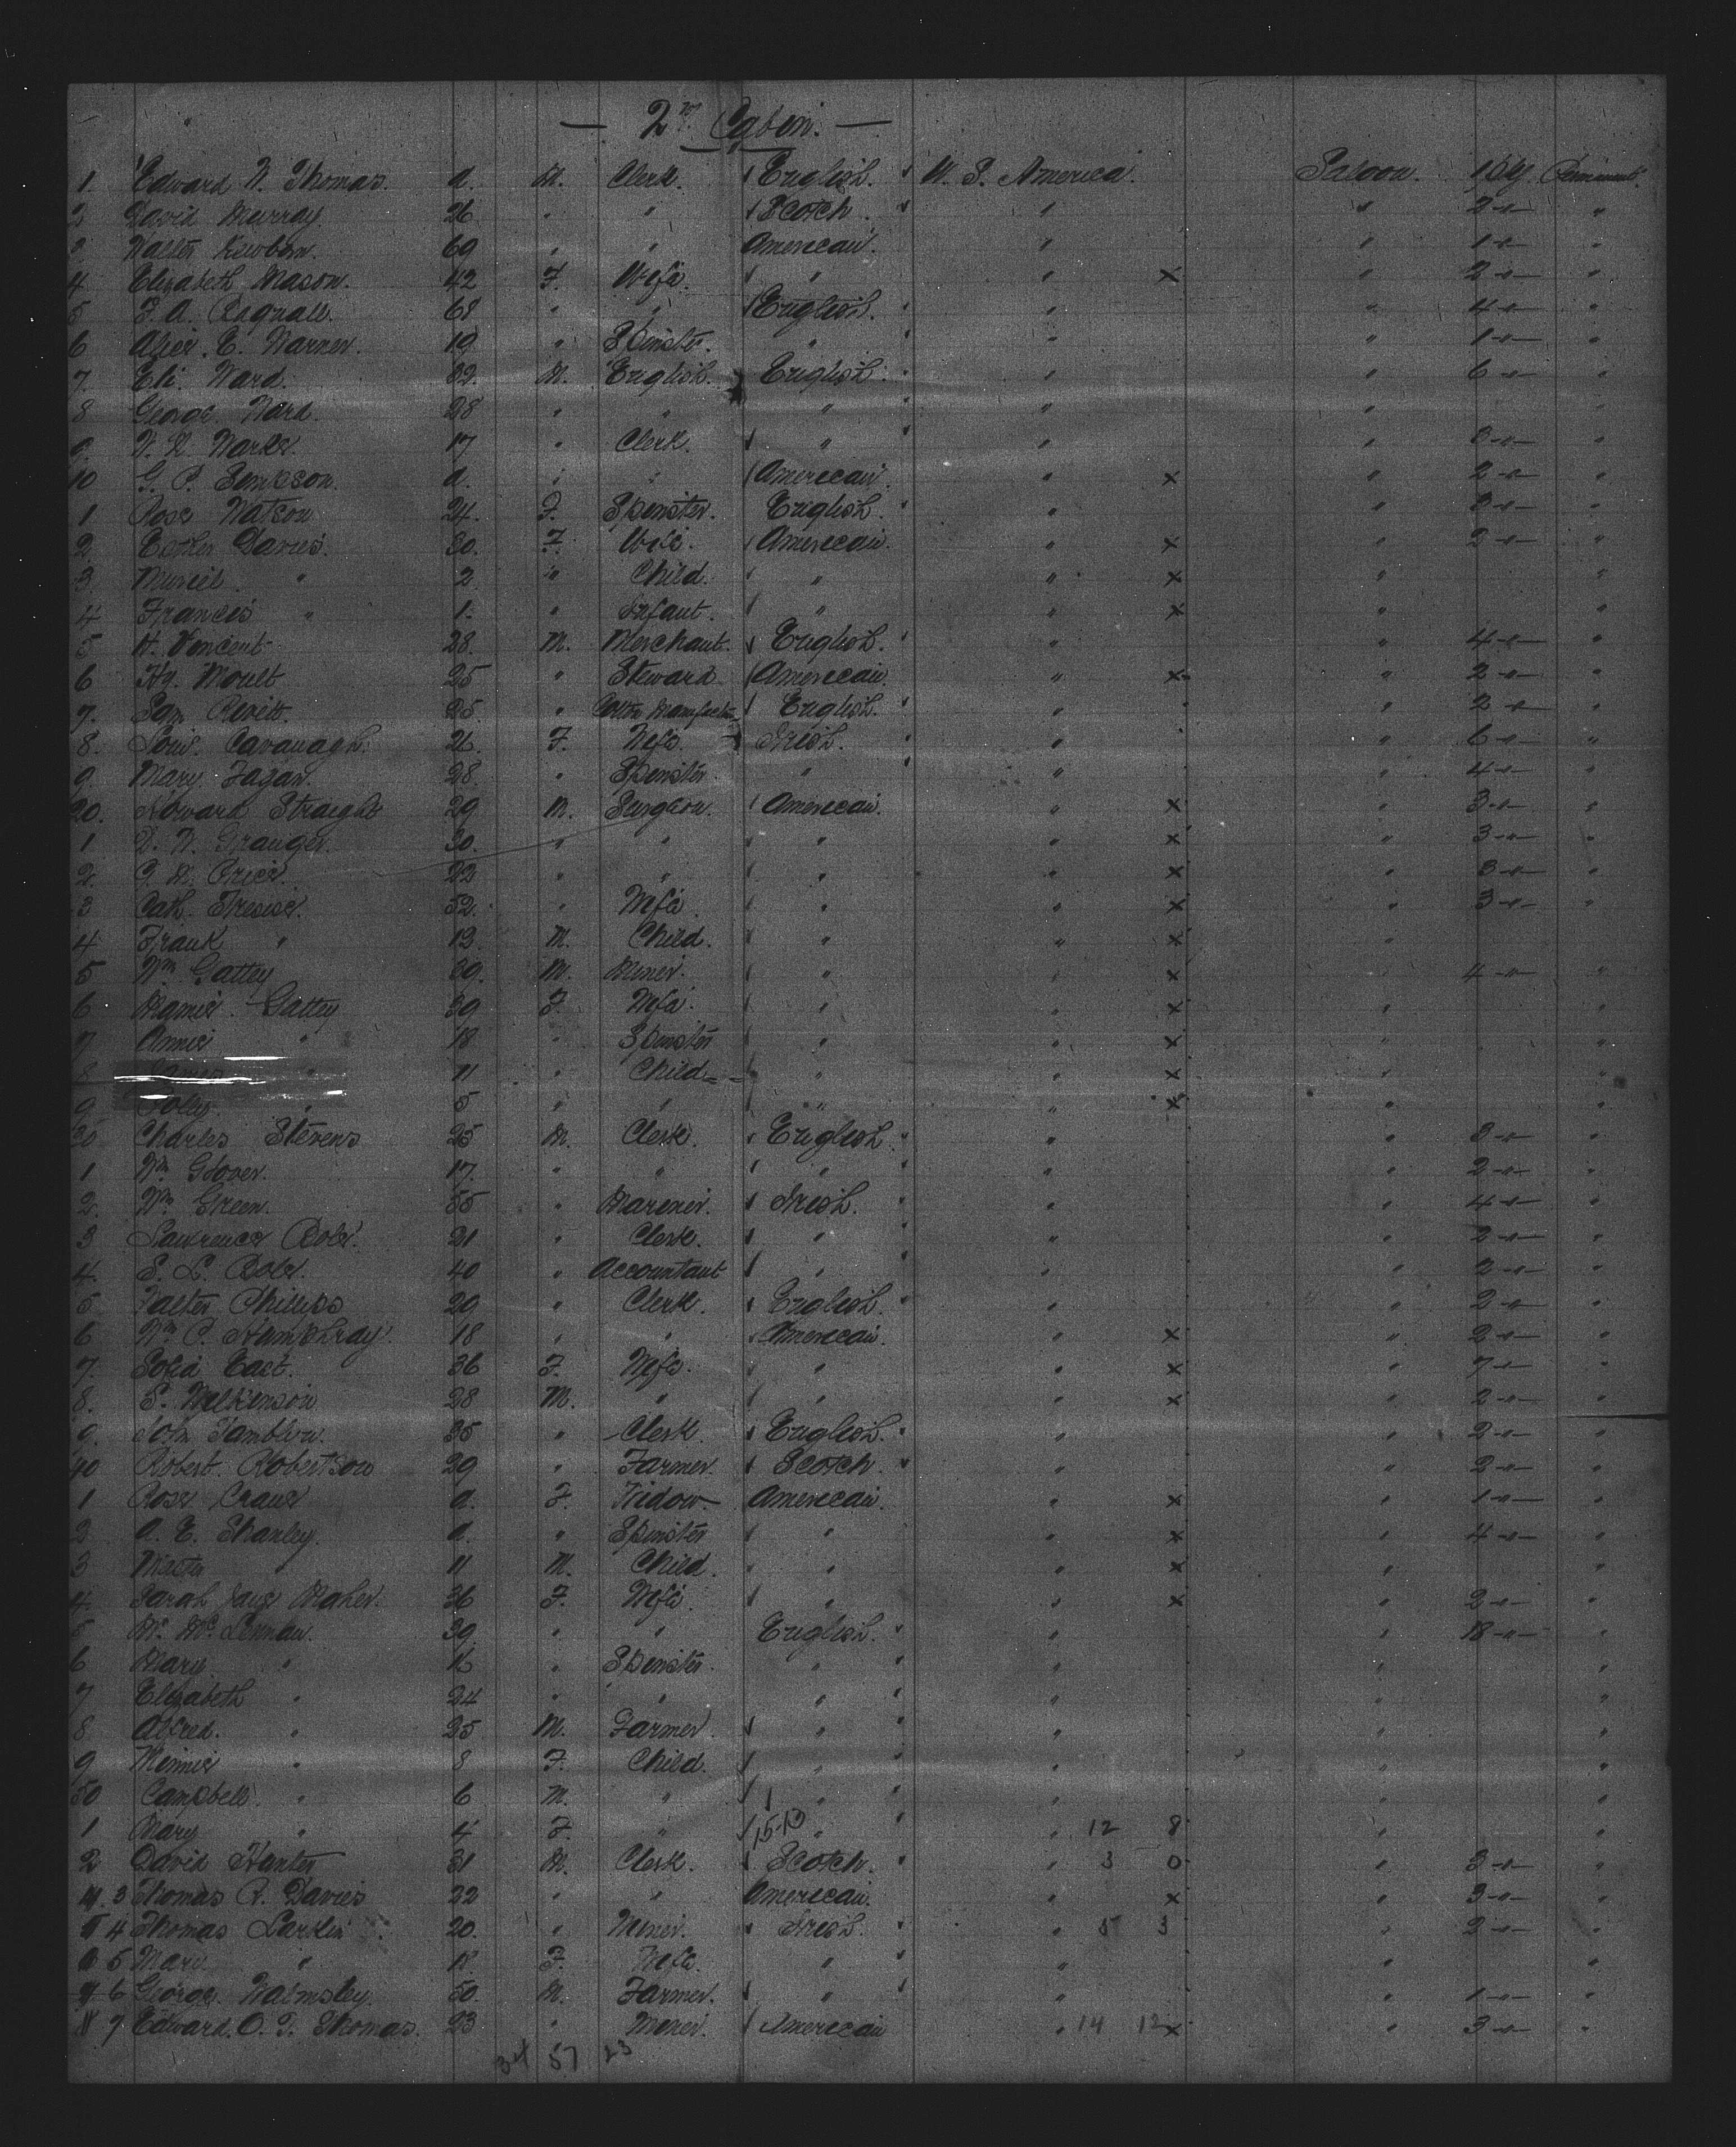 — 2nd Cabin. —
1. Edward W. Thomas. a. M. Clerk. English. U. S. America. Saloon. 1 pkg. Permanent.
2 David Murray. 26 " " Scotch. " " 2 -"- "
3 Walter 69 " " American. " " 1 -"- "
4 Elizabeth Mason. 42 F. Wife. " " x " 2 -"- "
5 F. A. Bagnall. 68 " " English. " " 4 -"- "
6 Alice. E. Warner. 19 " Spinster. " " " 1 -"- "
7. Eli. Ward. 32. M. English. English. " " 6 -"- "
8 George Ward. 28 " " " " " "
9. 17 " Clerk. " " " 3 -"- "
10 G. P. a. " " American. " x " 2 -"- "
1 Rose Watson 24. F. Spinster. English. " " 3 -"- "
2 Esther Davies. 30. F. Wife. American. " x " 2 -"- "
3. Muriel " 2. " Child. " " x " "
4 Francis " 1. " Infant. " " x " "
5 H. Vincent 28. M. Merchant. English. " " 4 -"- "
6 Hy. Moult 25 " Steward. American " x " 2 -"- "
7. Sam 25. " Cotton Manufacturer English. " " 2 -"- "
8. Cavanagh. 26. F. Wife. Irish. " " 6 -"- "
9. Mary Fagan. 28. " Spinster. " " " 4 -"- "
20. Howard Straight 29. M. Surgeon. American. " x " 3 -"- "
1 D. W. Granger. 30. " " " " x " 3 -"- "
2. Price. 22 " " " " x " 3 -"- "
3 Cath. 52. " Wife. " " x " 3 -"- "
4 Frank " 13. M. Child. " " x "
5 Wm Gattey 39. M. Miner. " " x " 4 -"- "
6 Mamie Gattey 39 F. Wife. " " x "
7 Annie " 18. " Spinster " " x " "
8 James " 11 " Child " " x " "
9 " 5 " " " " x " "
30 Charles Stevens 25 M. Clerk. English. " " 3 -"- "
1 Wm Glover. 17. " " " " " 2 -"- "
2. Wm Green. 55 " Mariner. Irish. " " 4 -"- "
3 Lawrence 21 " Clerk. " " " 2 -"- "
4. S. L. 40 " Accountant " " " 2 -"- "
5. Walter Phillips 29 " Clerk. English. " " 2 -"- "
6 Wm C. Humphray. 18 " " American. " x " 2 -"- "
7. Sofia East. 36 F. Wife. " " x " 7 -"- "
8. S. Wilkinson 28 M. " " " x " 2 -"- "
9. John Tamblin. 35 " Clerk. English. " " 2 -"- "
40 Robert. Robertson 29 " Farmer. Scotch. " " 2 -"- "
1 Rose Crane a. F. Widow American. " x " 1 -"- "
2 A. E. Stanley. a. " Spinster " " x " 4 -"- "
3 " 11 M. Child. " " x " "
4. Sarah Jane Maher. 36 F. Wife. " " x " 2 -"- "
5 Mc Lennan. 39. " " English. " " 18 -"- "
6 Mary. " 16 " Spinster. " " " "
7 Elizabeth " 24 " " " " " "
8 Alfred. " 25 M. Farmer. " " " "
9 Minnie " 8 F. Child. " " " "
50 Campbell. " 6 M. " " " " "
1 Mary " 4 F. " 15-13 " " 12 8 " "
2 David Hunter 31 M. Clerk. Scotch. " 3 0 " 3 -"- "
3 Thomas R. Davies 22 " " American. " x " 3 -"- "
4 Thomas Larkin 20. " Miner. Irish. " 5 3 " 2 -"- "
5 Mary " 18. F. Wife. " " " "
6 George. Walmsley. 50. M. Farmer. " " " 1 -"- "
7 Edward. O. T. Thomas. 23 " Miner. American " 14 12 x " 3 -"- "
34 57 23